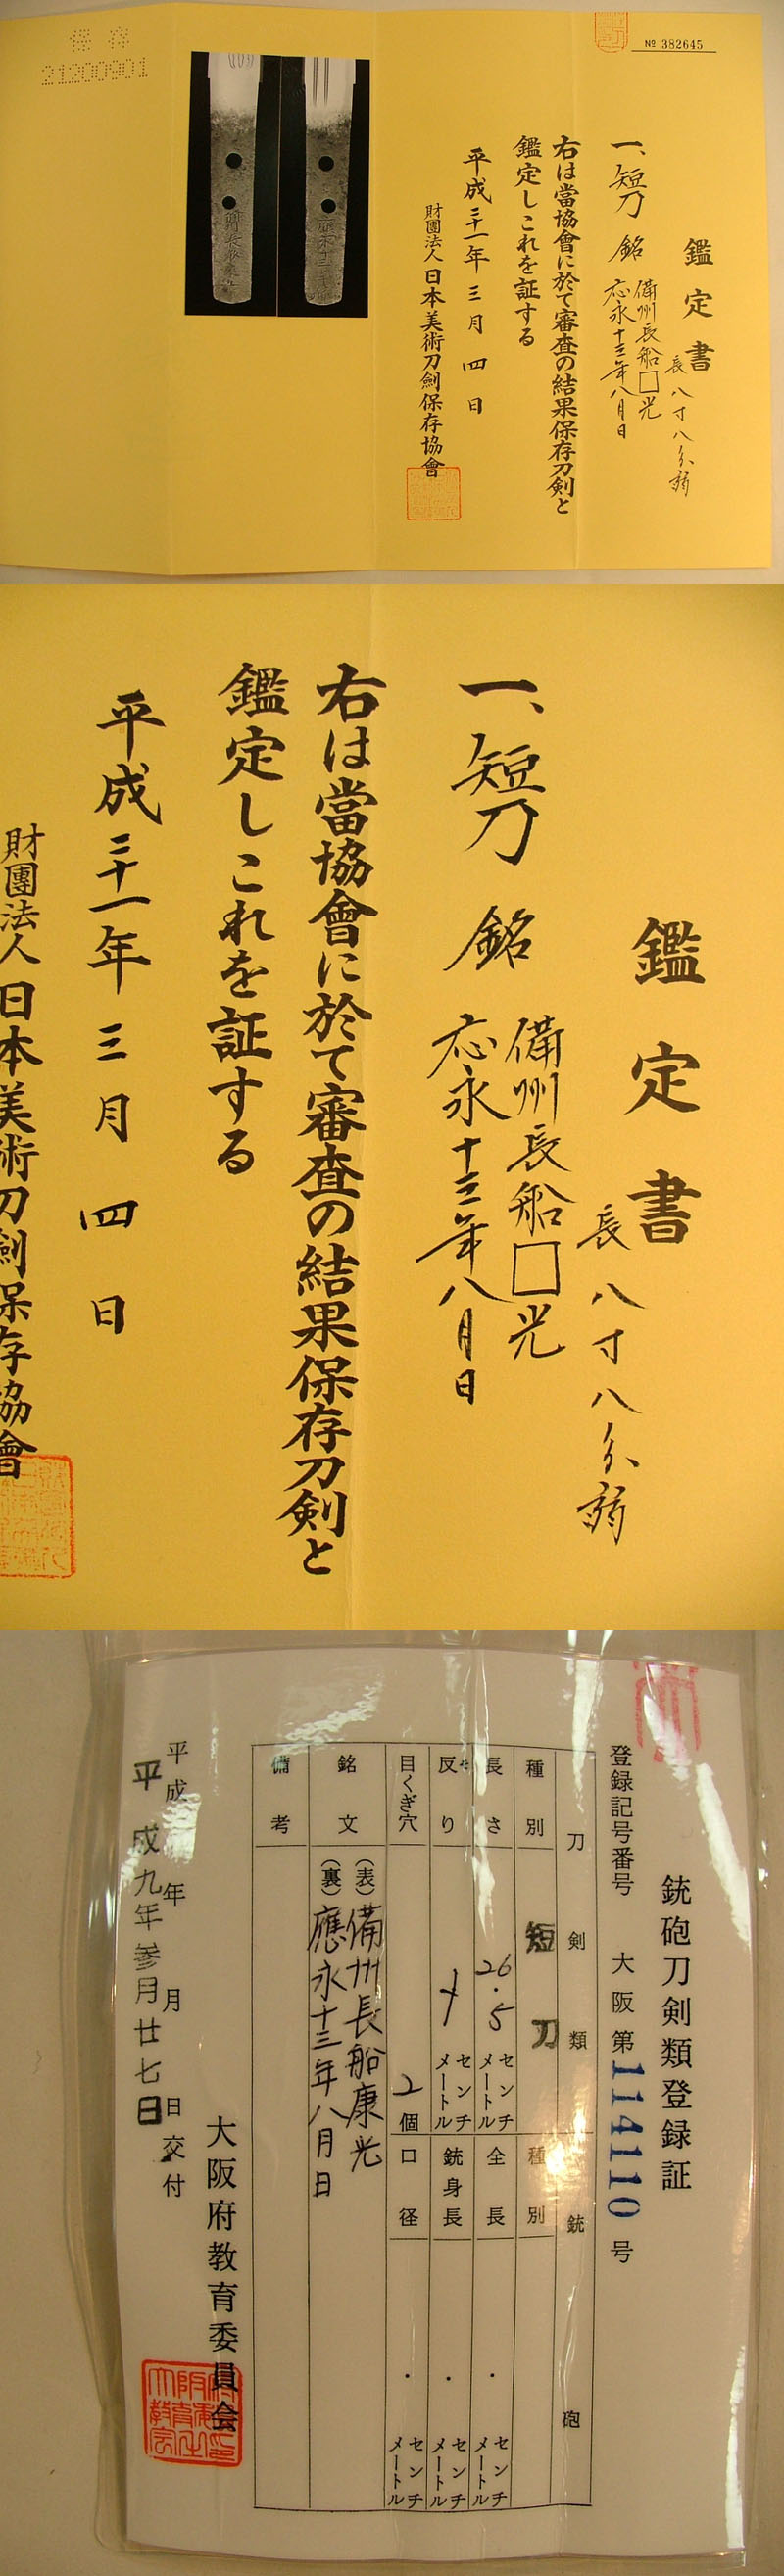 № 382645
鑑定書
長八寸八分弱
一、短刀 銘 備州長船□光
応永十三年八月日
右は當協會に於て審査の結果保存刀剣と
鑑定しこれを証する
平成三十一年三月四日
財團法人日本美術刀劍保存協會
保存
21200901
鑑定書
長八寸八分弱
一、短刀 銘 備州長船□光
応永十三年八月日
右は當協會に於て審査の結果保存刀剣と
鑑定しこれを証する
平成三十一年三月四日
財團法人日本美術刀劍保存協會
銃砲刀剣類登録証
登録記号番号 大阪第114110号
刀剣類 銃砲
種別 短刀 種別
長さ 26.5 センチメートル 全長 . センチメートル
反り センチメートル 銃身長 . センチメートル
目くぎ穴 2個 口径 . センチメートル
銘文 (表)備州長船康光
(裏)應永十三年八月日
備考
平成 年 月 日交付
平成九年参月廿七日
大阪府教育委員会